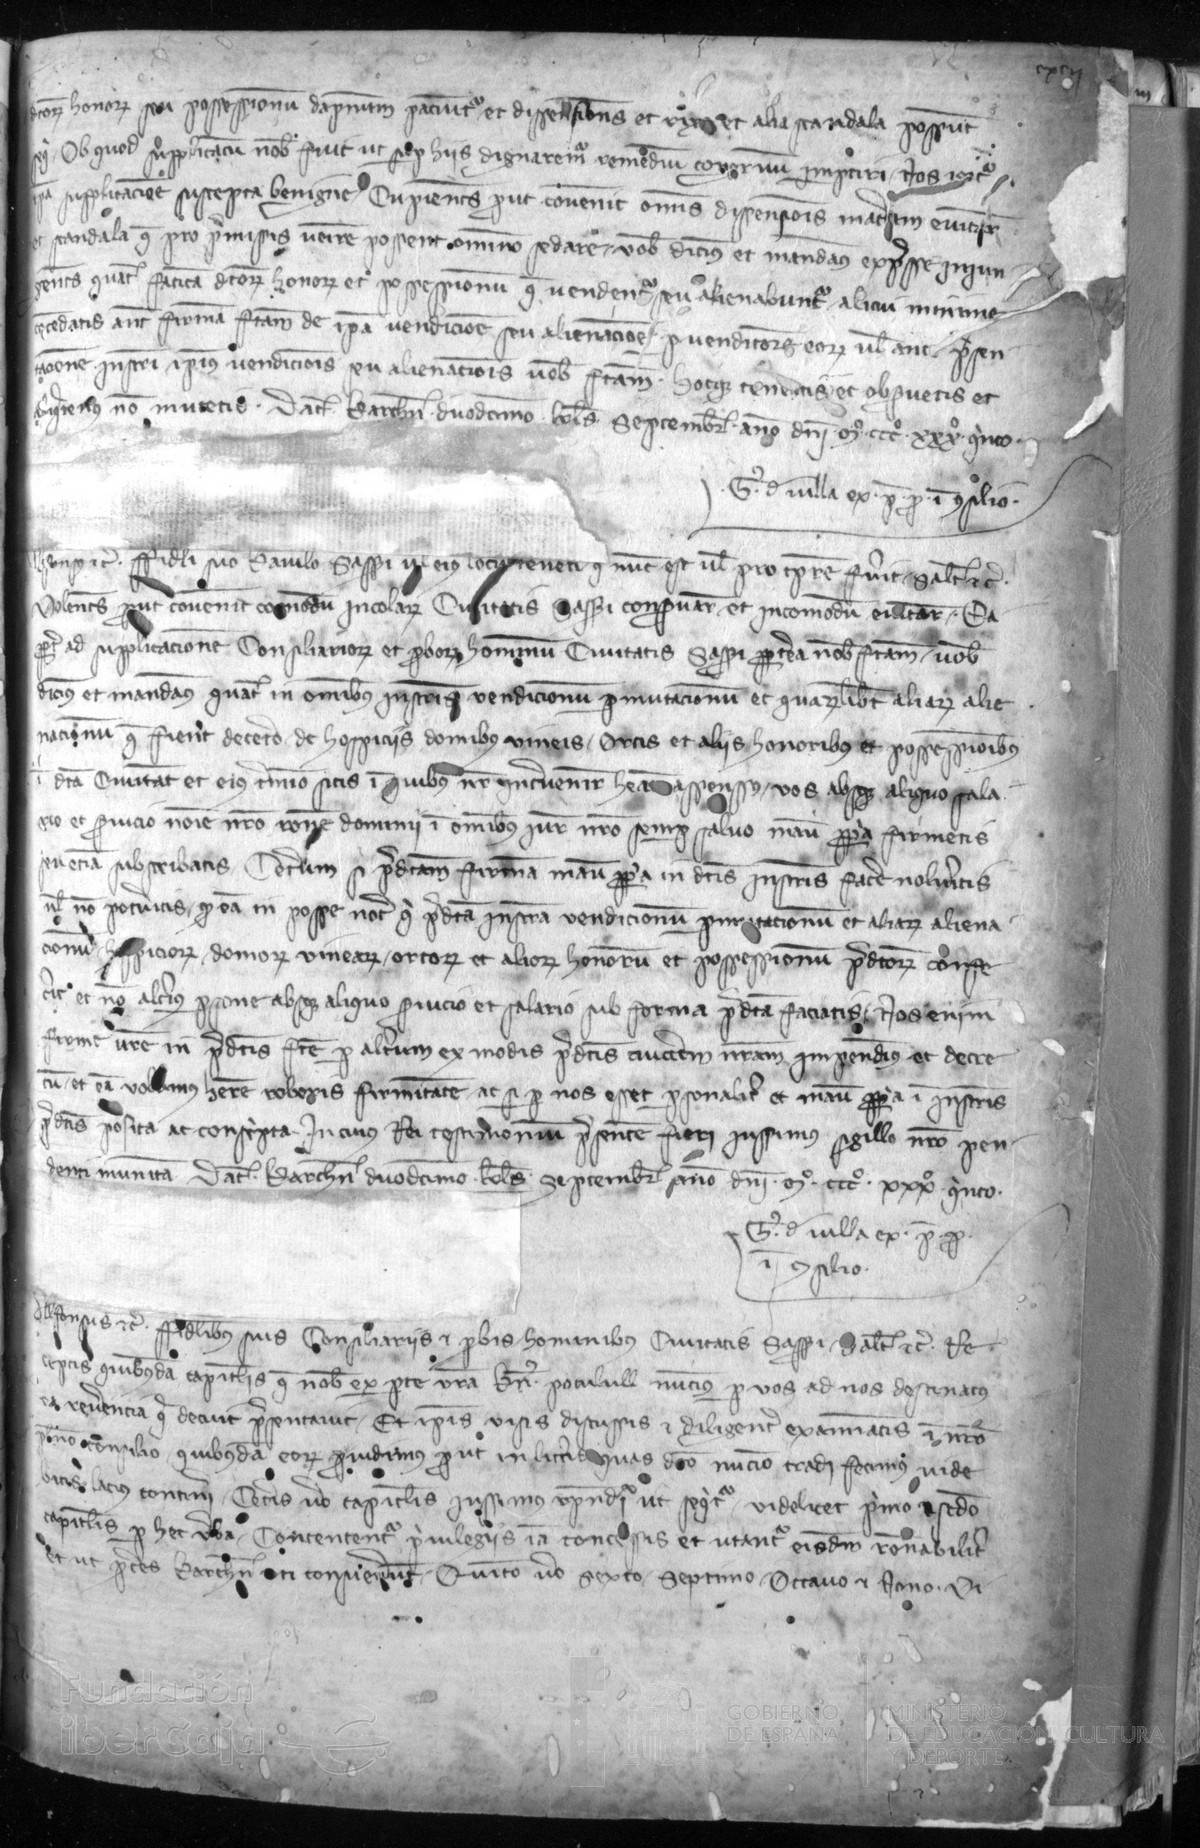 cxcii
dictorum honorum seu possessionum dapnum paciuntur et dissensiones et rixe et alia scandala possunt
sequi. Ob quod supplicatum nobis fuit ut super hiis dignaremur remedium congruum impertiri. Nos igitur
ipsa supplicacione suscepta benigne Cupientes prout convenit omnis dissensionis materiam evitare
et scandala que pro premissis venire possent omnino sedare, vobis dicimus et mandamus expresse iniun
gentes quatenus faticam dictorum honorum et possessionum que vendentur seu alienabuntur alicui minime
concedatis ante firmam factam de ipsa vendicione seu alienacione per venditores eorum vel ante presen
tacionem instrumenti ipsius vendicionis seu alienacionis vobis factam. Hocque teneatis et observetis et
nullatenus non mutetis. Dat. Barchinone duodecimo kalendas Septembris anno domini Mº CCCº XXXº quinto.
G. de villa ex. p. p. in consilio.
Alfonsus etc. Fideli suo Baiulo Sasseri vel eius locumtenenti qui nunc est vel pro tempore fuerit Salutem etc.
Volentes prout convenit comodum incolarum Civitatis Sasseri conservare et incomodum evitare. Ea
propter ad supplicacionem Consiliariorum et proborum hominum Civitatis Sasseri propterea nobis factam, vobis
dicimus et mandamus quatenus in omnibus instrumentis vendicionum permutacionum et quarumlibet aliarum alie
nacionum que fient decetero de hospiciis domibus vineis, Ortis et aliis honoribus et possessionibus
in dicta Civitate et eius termino sitis in quibus
assensus, vos absque aliquo sala
rio et servicio nomine nostro racione dominii in omnibus iure nostro semper salvo manu propria firmetis
seu etiam subscribatis. Ceterum si predictam firmam manu propria in dictis instrumentis facere nolueritis
vel non poteritis, ea in posse notarii qui predicta instrumenta vendicionum permutacionum et aliarum aliena
cionum hospiciorum, domorum vinearum, ortorum et aliorum honorum et possessionum predictorum confe
cerit et non alterius persone absque aliquo servicio et salario sub forma predicta faciatis. Nos enim
firme vestre in predictis facte per alterum ex modis predictis auctoritatem nostram impendimus et decre
tum, et eam volumus habere roboris firmitatem ac si per nos esset personaliter et manu propria in instrumentis
predictis posita ac conscripta. In cuius Rei testimonium presentem fieri iussimus sigillo nostro pen
denti munitam. Dat. Barchinone duodecimo kalendas Septembris anno domini Mº CCCº XXXº quinto.
G. de villa ex. p. p.
in consilio.
Alfonsus etc. Fidelibus suis Consiliariis et probis hominibus Civitatis Sasseri Salutem etc. Re
ceptis quibusdam capitulis que nobis ex parte vestra nuncius per vos ad nos destinatus
ea reverencia qua decuit presentavit. Et ipsis visis discussis et diligenter examinatis in nostro
pleno consilio, quibusdam eorum providimus prout in litteris quas dicto nuncio tradi fecimus vide
bitis lacius contineri, Ceteris vero capitulis iussimus responderi ut sequitur, videlicet primo et secundo
capitulis per hec verba. Contententur privilegiis iam concessis et utantur eisdem racionabiliter
et ut cives Barchinone uti consueverunt. Quinto vero sexto, Septimo, Octavo et Nono. Di
Fundación
iberCaja
GOBIERNO
DE ESPAÑA
MINISTERIO
DE EDUCACIÓN, CULTURA
Y DEPORTE